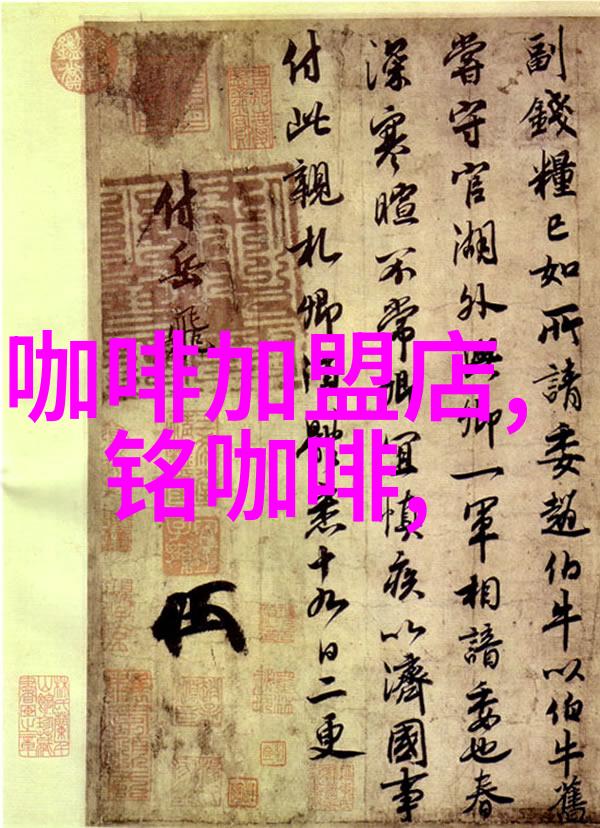 咖啡加盟店,
铭咖啡,
副錢糧已如所請委趙伯牛以伯牛舊
嘗守官湖外與卿一軍相諳委也春
深寒暄不常卿宜慎疾以濟國事
付此親札卿須體悉十九日二更
付岳飛